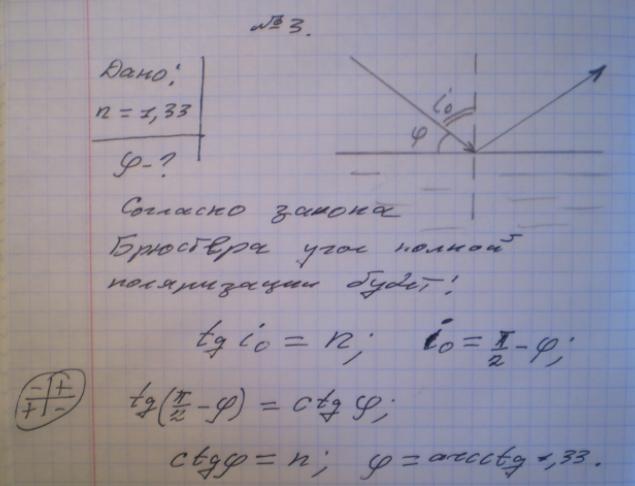 № 3.
Дано:
n = 1,33
φ - ?
i₀
φ
Согласно закона
Брюстера угол полной
поляризации будет:
tg i₀ = n; i₀ = π/2 - φ;
- +
+ -
tg(π/2 - φ) = ctg φ;
ctgφ = n; φ = arcctg 1,33.